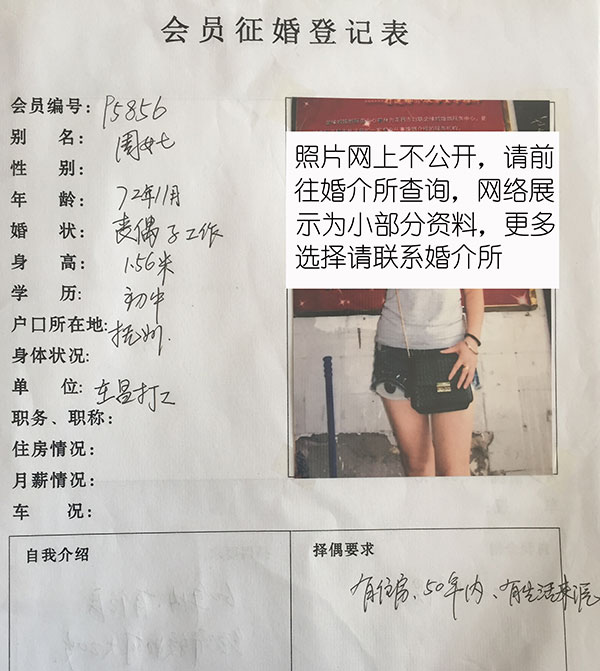 会员征婚登记表
会员编号：P5856
别 名：周女士
性 别：
年 龄：72年11月
婚 状：丧偶子工作
身 高：1.56米
学 历：初中
户口所在地：抚州.
身体状况：
单 位：在昌打工
职务、职称：
住房情况：
月薪情况：
车 况：
照片网上不公开，请前
往婚介所查询，网络展
示为小部分资料，更多
选择请联系婚介所
自我介绍
择偶要求
有住房、50年内、有生活来源